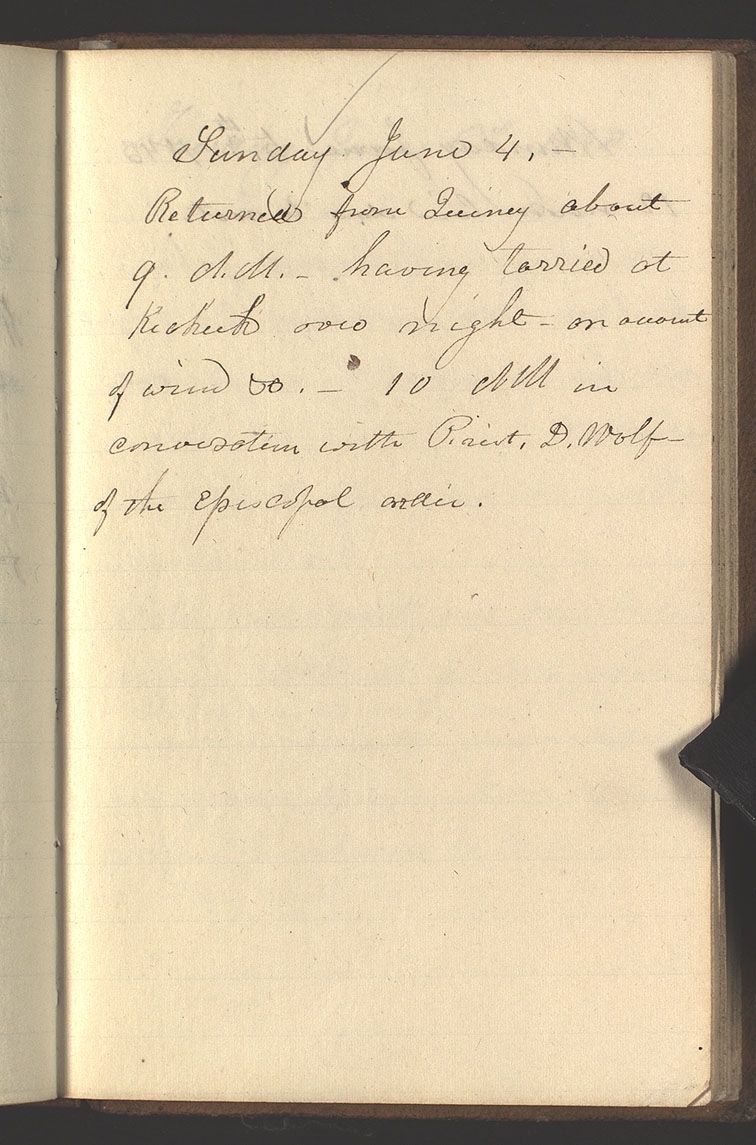 Sunday June 4. —
Returned from Quincy about
9. A.M. — having tarried at
Keokuk over night — on account
of wind &c. — 10 AM in
conversation with Priest. D. Wolf —
of the Episcopal order.